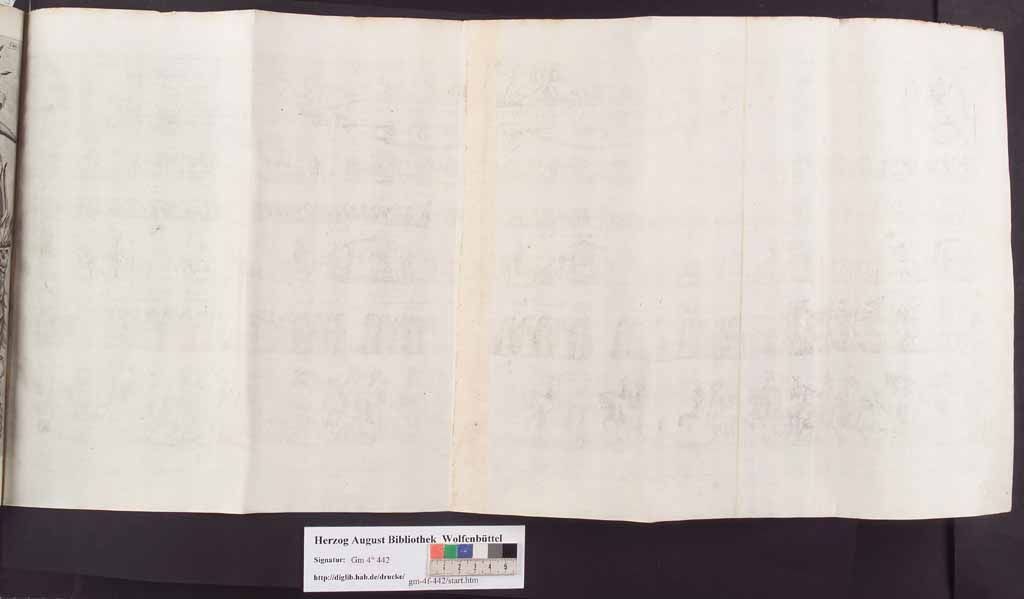 Herzog August Bibliothek Wolfenbüttel
Signatur: Gm 4° 442
http://diglib.hab.de/drucke/ gm-4f-442/start.htm
1 2 3 4 5